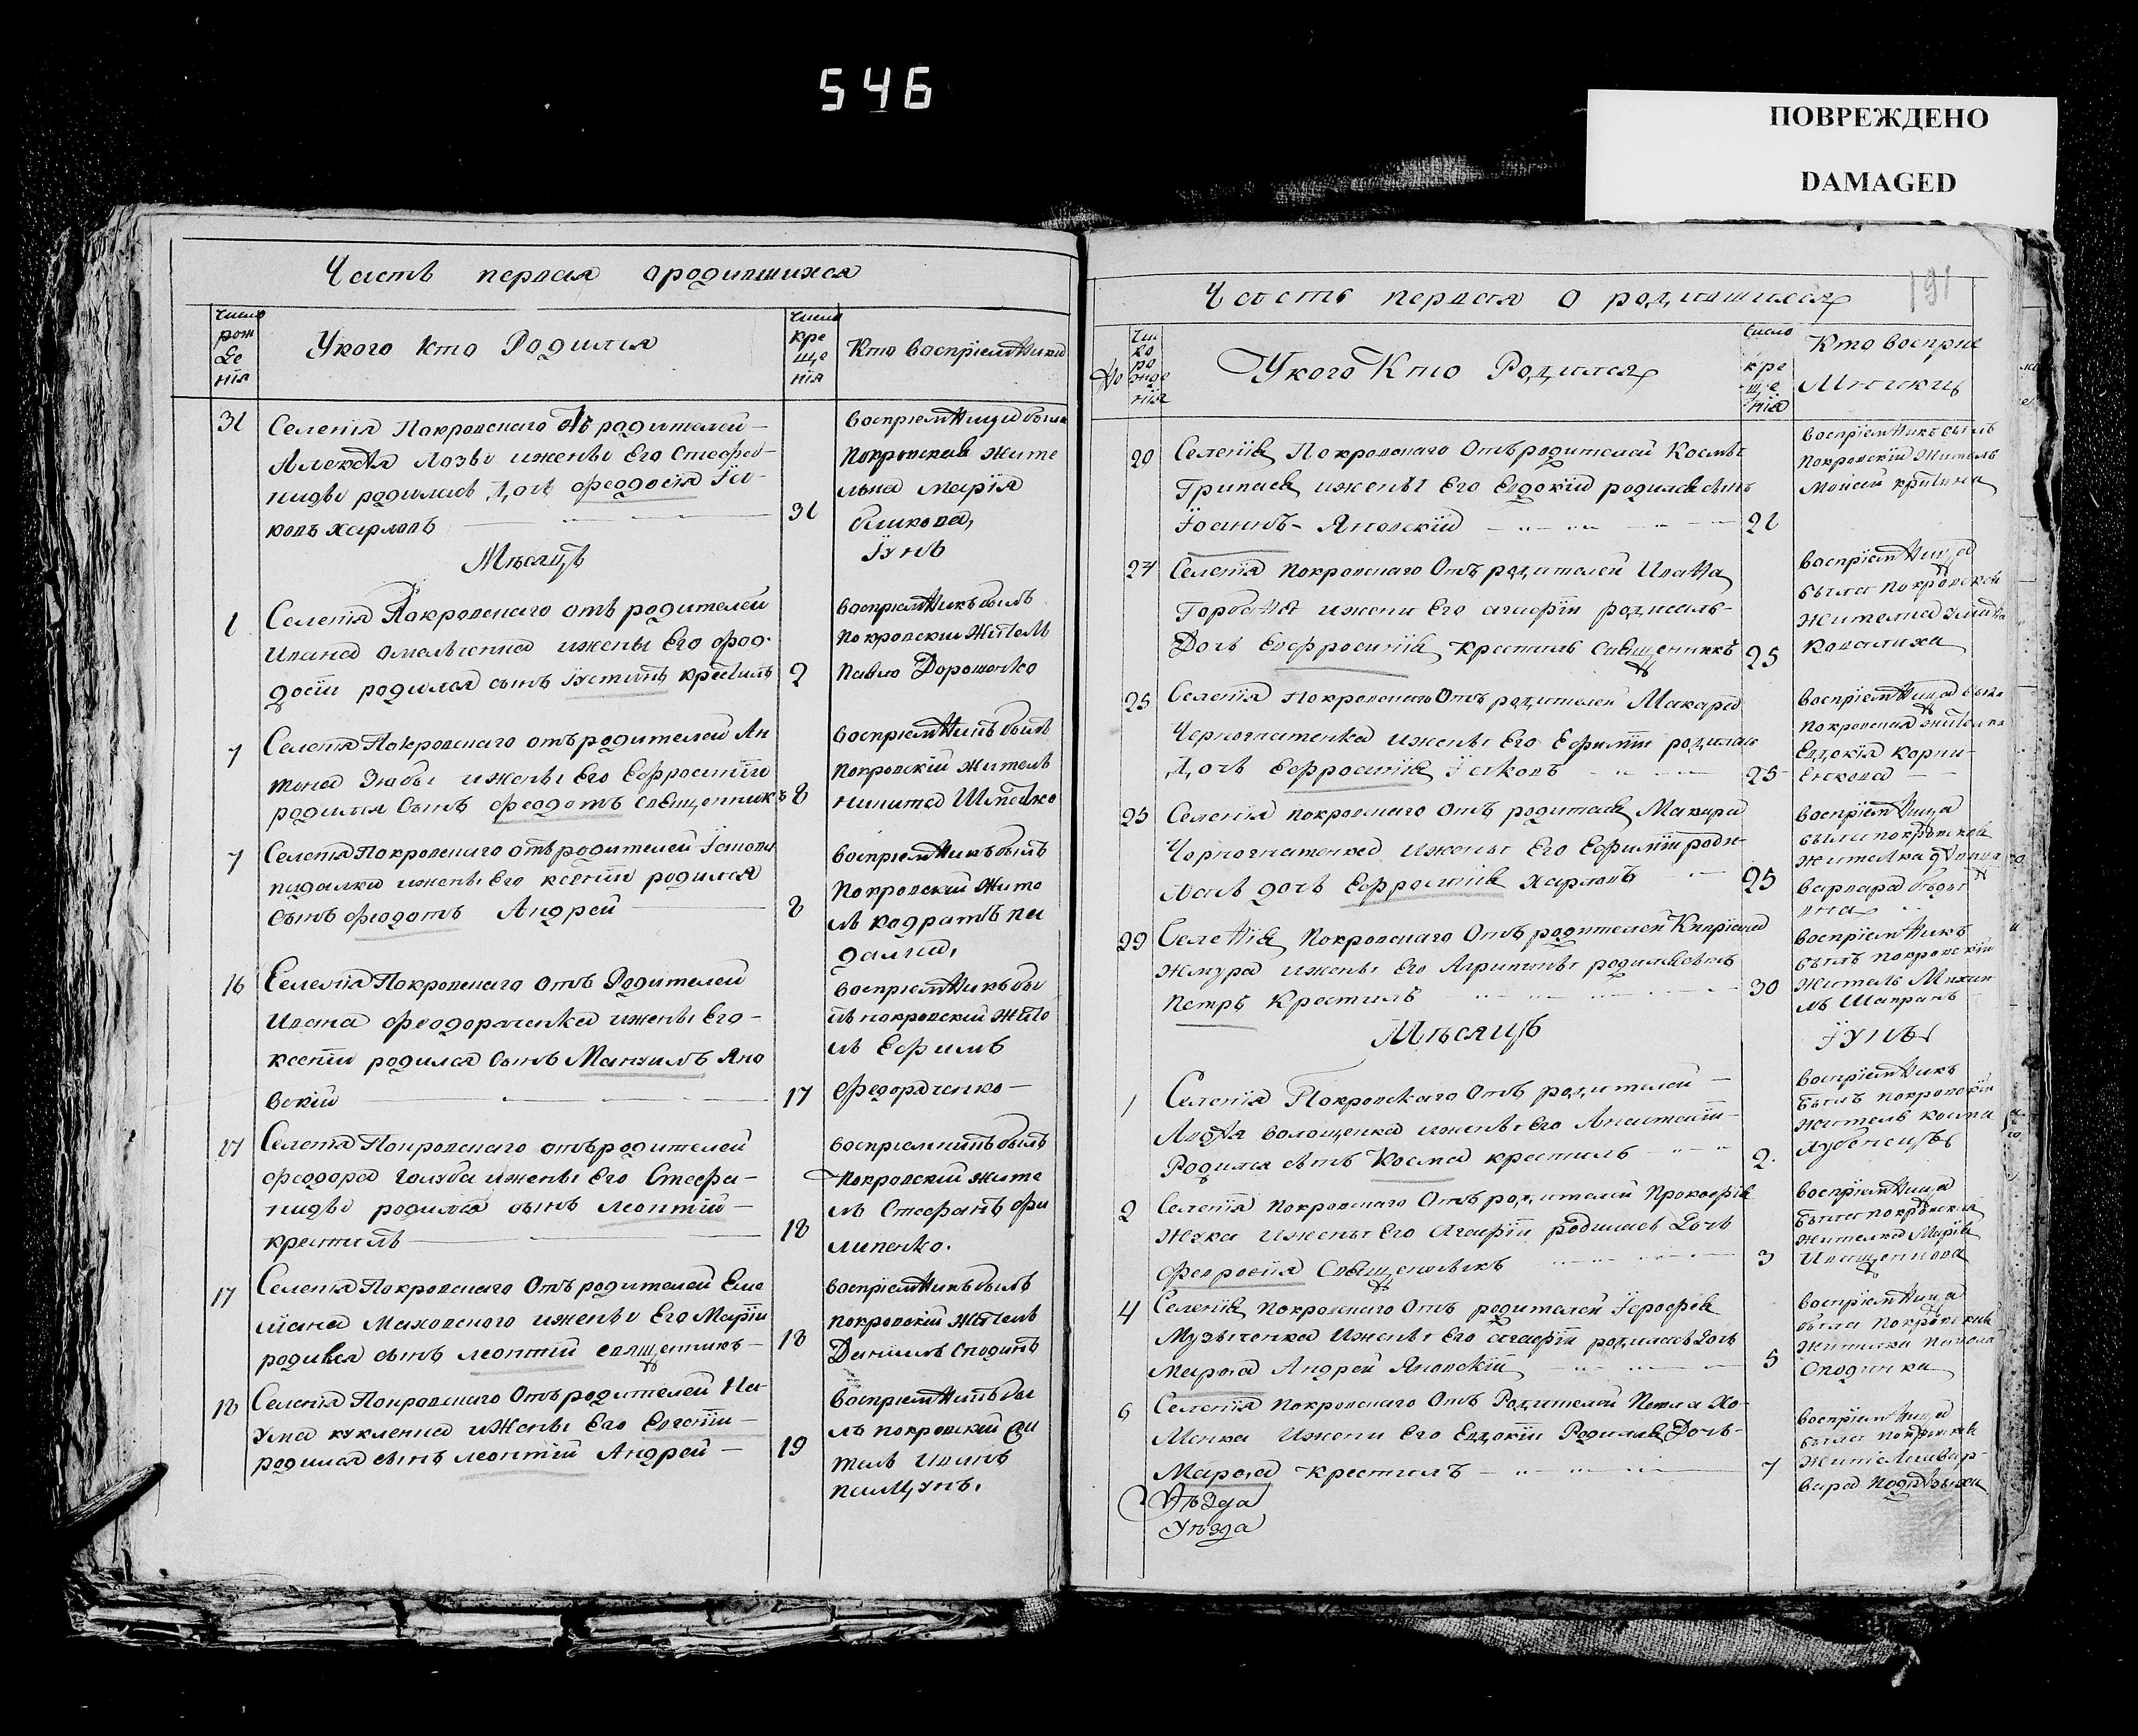 546
ПОВРЕЖДЕНО
DAMAGED
Часть первая ородившихся
Число рож де нія
Укого Кто Родился
Число кре ще нія
Кто воспріемники
31
Селенія Покровскаго отъ родителей
Алексѣя Лозы ижены Его Стефа-
ниды родилась дочь Феодосія Іа-
ковъ харловъ
31
воспріемницей была
Покровская жите
льна Марія
бликова,
Мѣсяцъ
Іунь
1
Селенія Покровскаго отъ родителей
Ивана омельченка ижены Его Фео-
досіи родился сынъ Іустинъ крестилъ
2
воспріемникъ былъ
покровский житель
Павло Дорошенко
7
Селенія Покровскаго отъ родителей Ан
тона Зюбы ижены Его Ефросиніи
родился Сынъ Феодотъ священникъ
8
воспріемникъ былъ
Покровскій житель
никита
7
Селенія Покровскаго отъ родителей
падалки ижены Его ксеніи родился
Сынъ Феодотъ Андрей
8
воспріемникъ былъ
Покровский жите
ль кодратъ па
далка,
16
Селенія Покровскаго отъ Родителей
Ивана Феодорченка ижены Его
ксеніи родился Сынъ Мануилъ Яно
вскій
17
воспріемникъ бы
лъ покровский жите
ль Ефимъ
Федорченко
17
Селенія Покровскаго отъ родителей
Феодора Голуба ижены Его Стефа-
ниды родился сынъ Леонтій
крестилъ
18
воспріемникъ былъ
Покровский жите
ль Стефанъ Фи
липенко.
17
Селенія Покровскаго Отъ родителей Еме
ліана Маховского ижены Его Маріи
родился сынъ леонтій священникъ
18
воспріемникъ былъ
покровскій житель
Даніилъ Сподинъ
18
Селенія Покровскаго Отъ родителей На-
ума кукленка ижены Его Евгеніи
родился сынъ леонтій Андрей
19
воспріемникъ бы
лъ покровский жи
тель Иванъ
палцунъ.
191
Часть первая О родившихся
№
Чи
ро жде нія
Укого Кто Родился
число кре ще нія
Кто воспріе
мники
20
Селенія Покровскаго Отъ родителей Космы
Грипаса ижены Его Евдокіи родился сынъ
Іоаннъ Яновскій
21
воспріемникъ былъ
Покровскій житель
Моисей
24
Селенія Покровскаго Отъ родителей Ивана
Горбаня ижени Его агафіи родилась
Дочь Ефросинія Крестилъ Священникъ
25
воспріемница
была покровская
жителка
Ковалиха
25
Селенія Покровскаго Отъ родителей Макара
Черногнатенка ижены Его Ефиміи родилась
Дочь Ефросинія Іаковъ
25
воспріемница была
покровская жителка
Евдокія корни-
енкова
25
Селенія покровскаго Отъ родителей Макара
Чорногнатенка ижены Его Ефиміи роди-
лась дочь Ефросинія харловъ
25
воспріемница
была покровская
жителка девица
варвара
29
Селенія Покровскаго Отъ родителей Кипріана
Жмура ижены Его Агрипины родился сынъ
Петръ Крестилъ
30
воспріемникъ
былъ покровскій
житель Михаи
лъ Шапранъ
Мѣсяцъ
Іуль
1
Селенія Покровскаго Отъ родителей
волощенка ижены Его Анастасіи
Родился сынъ Косма крестилъ
2.
воспріемникъ
былъ покровскій
житель косма
лубенецъ
2
Селенія Покровскаго Отъ родителей Прокофія
Жука ижены Его Агафіи родилась Дочь
Феврооія Священникъ
3
воспріемница
была покровская
жителка Марія
Иващенкова
4
Селенія Покровскаго Отъ родителей Іерофея
Музыченка Ижены Его агафіи родилась Дочь
Марфа Андрей Яновскій
5
воспріемница
была Покровская
жителка
Сподинка
6
Селенія Покровскаго Отъ Родителей Петла Хо-
менка Ижени Его Евдокіи Родилась Дочь
Марфа Крестилъ
7
воспріемница
была покровская
жителка вар-
вара
Уѣзда
Уѣзда